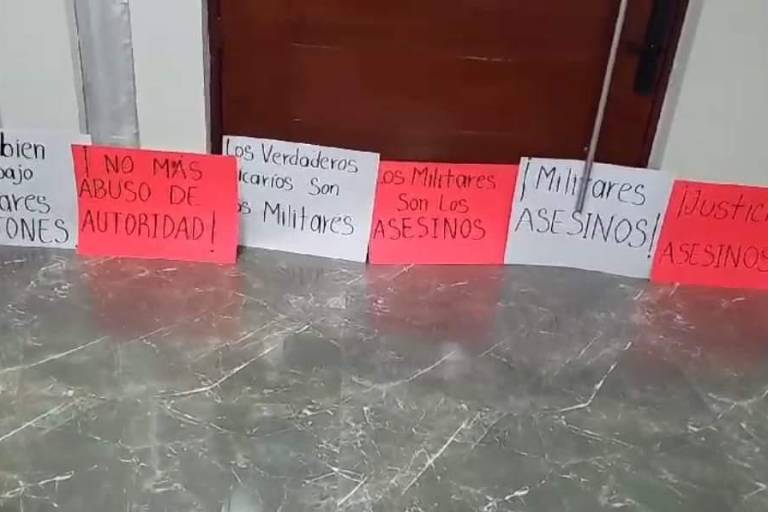 bien
bajo
ares
TONES
¡NO MÁS
ABUSO DE
AUTORIDAD!
Los Verdaderos
icarios Son
os Militares
Los Militares
Son Los
ASESINOS
¡Militares
ASESINOS!
¡Justici
ASESINOS